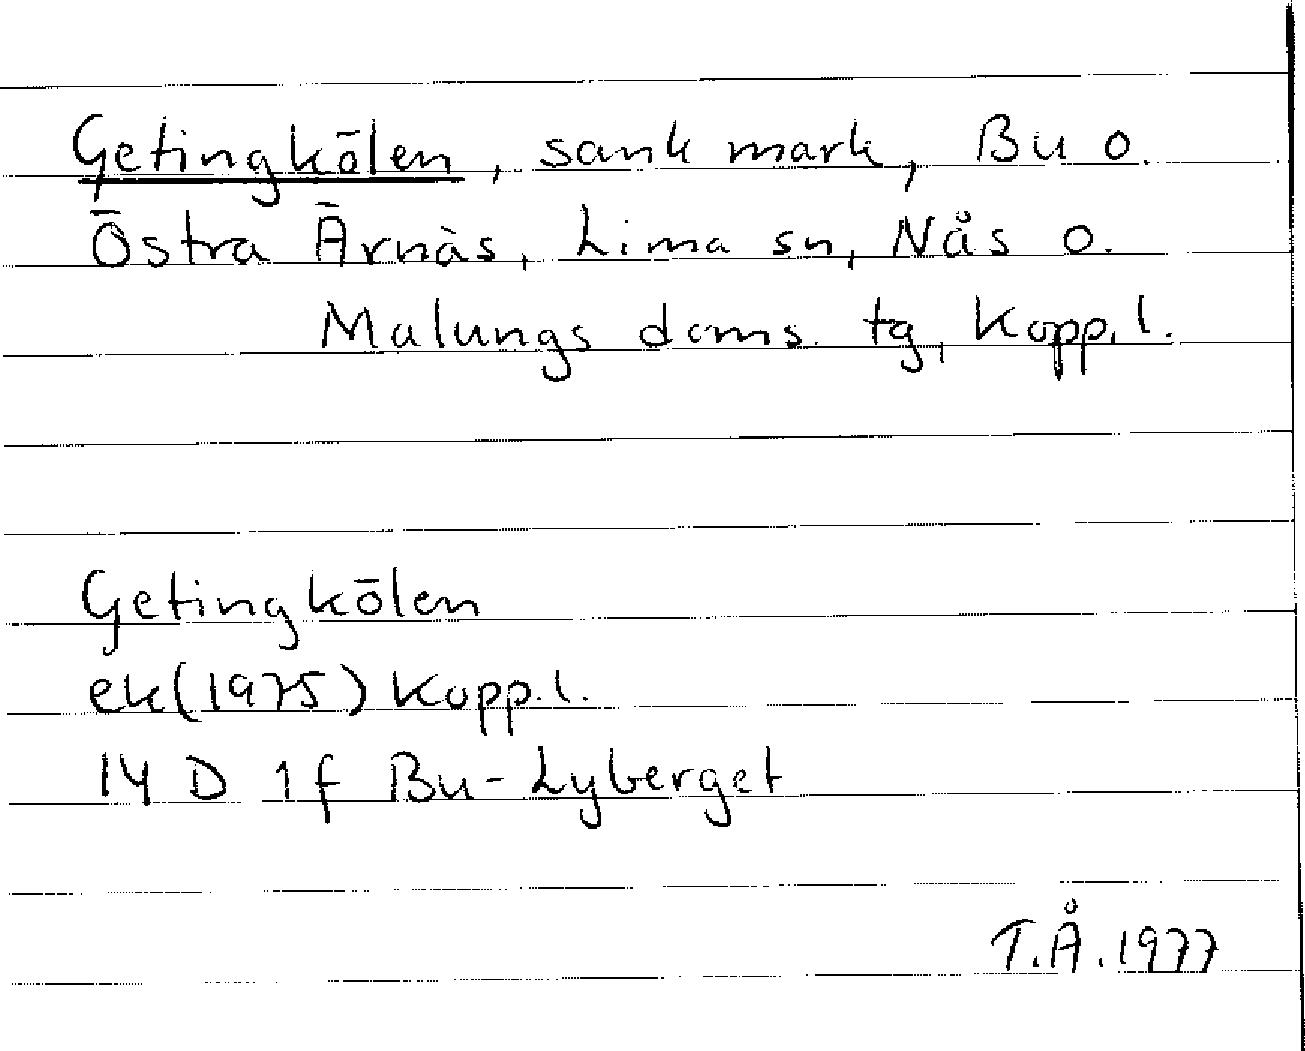 Getingkölen, sank mark, Bu o.
Östra Ärnäs, Lima sn, Nås o.
Malungs doms. tg, Kopp. l.
Getingkölen
ek (1975) Kopp. l.
14 D 1f Bu-Lyberget
T.Å. 1977